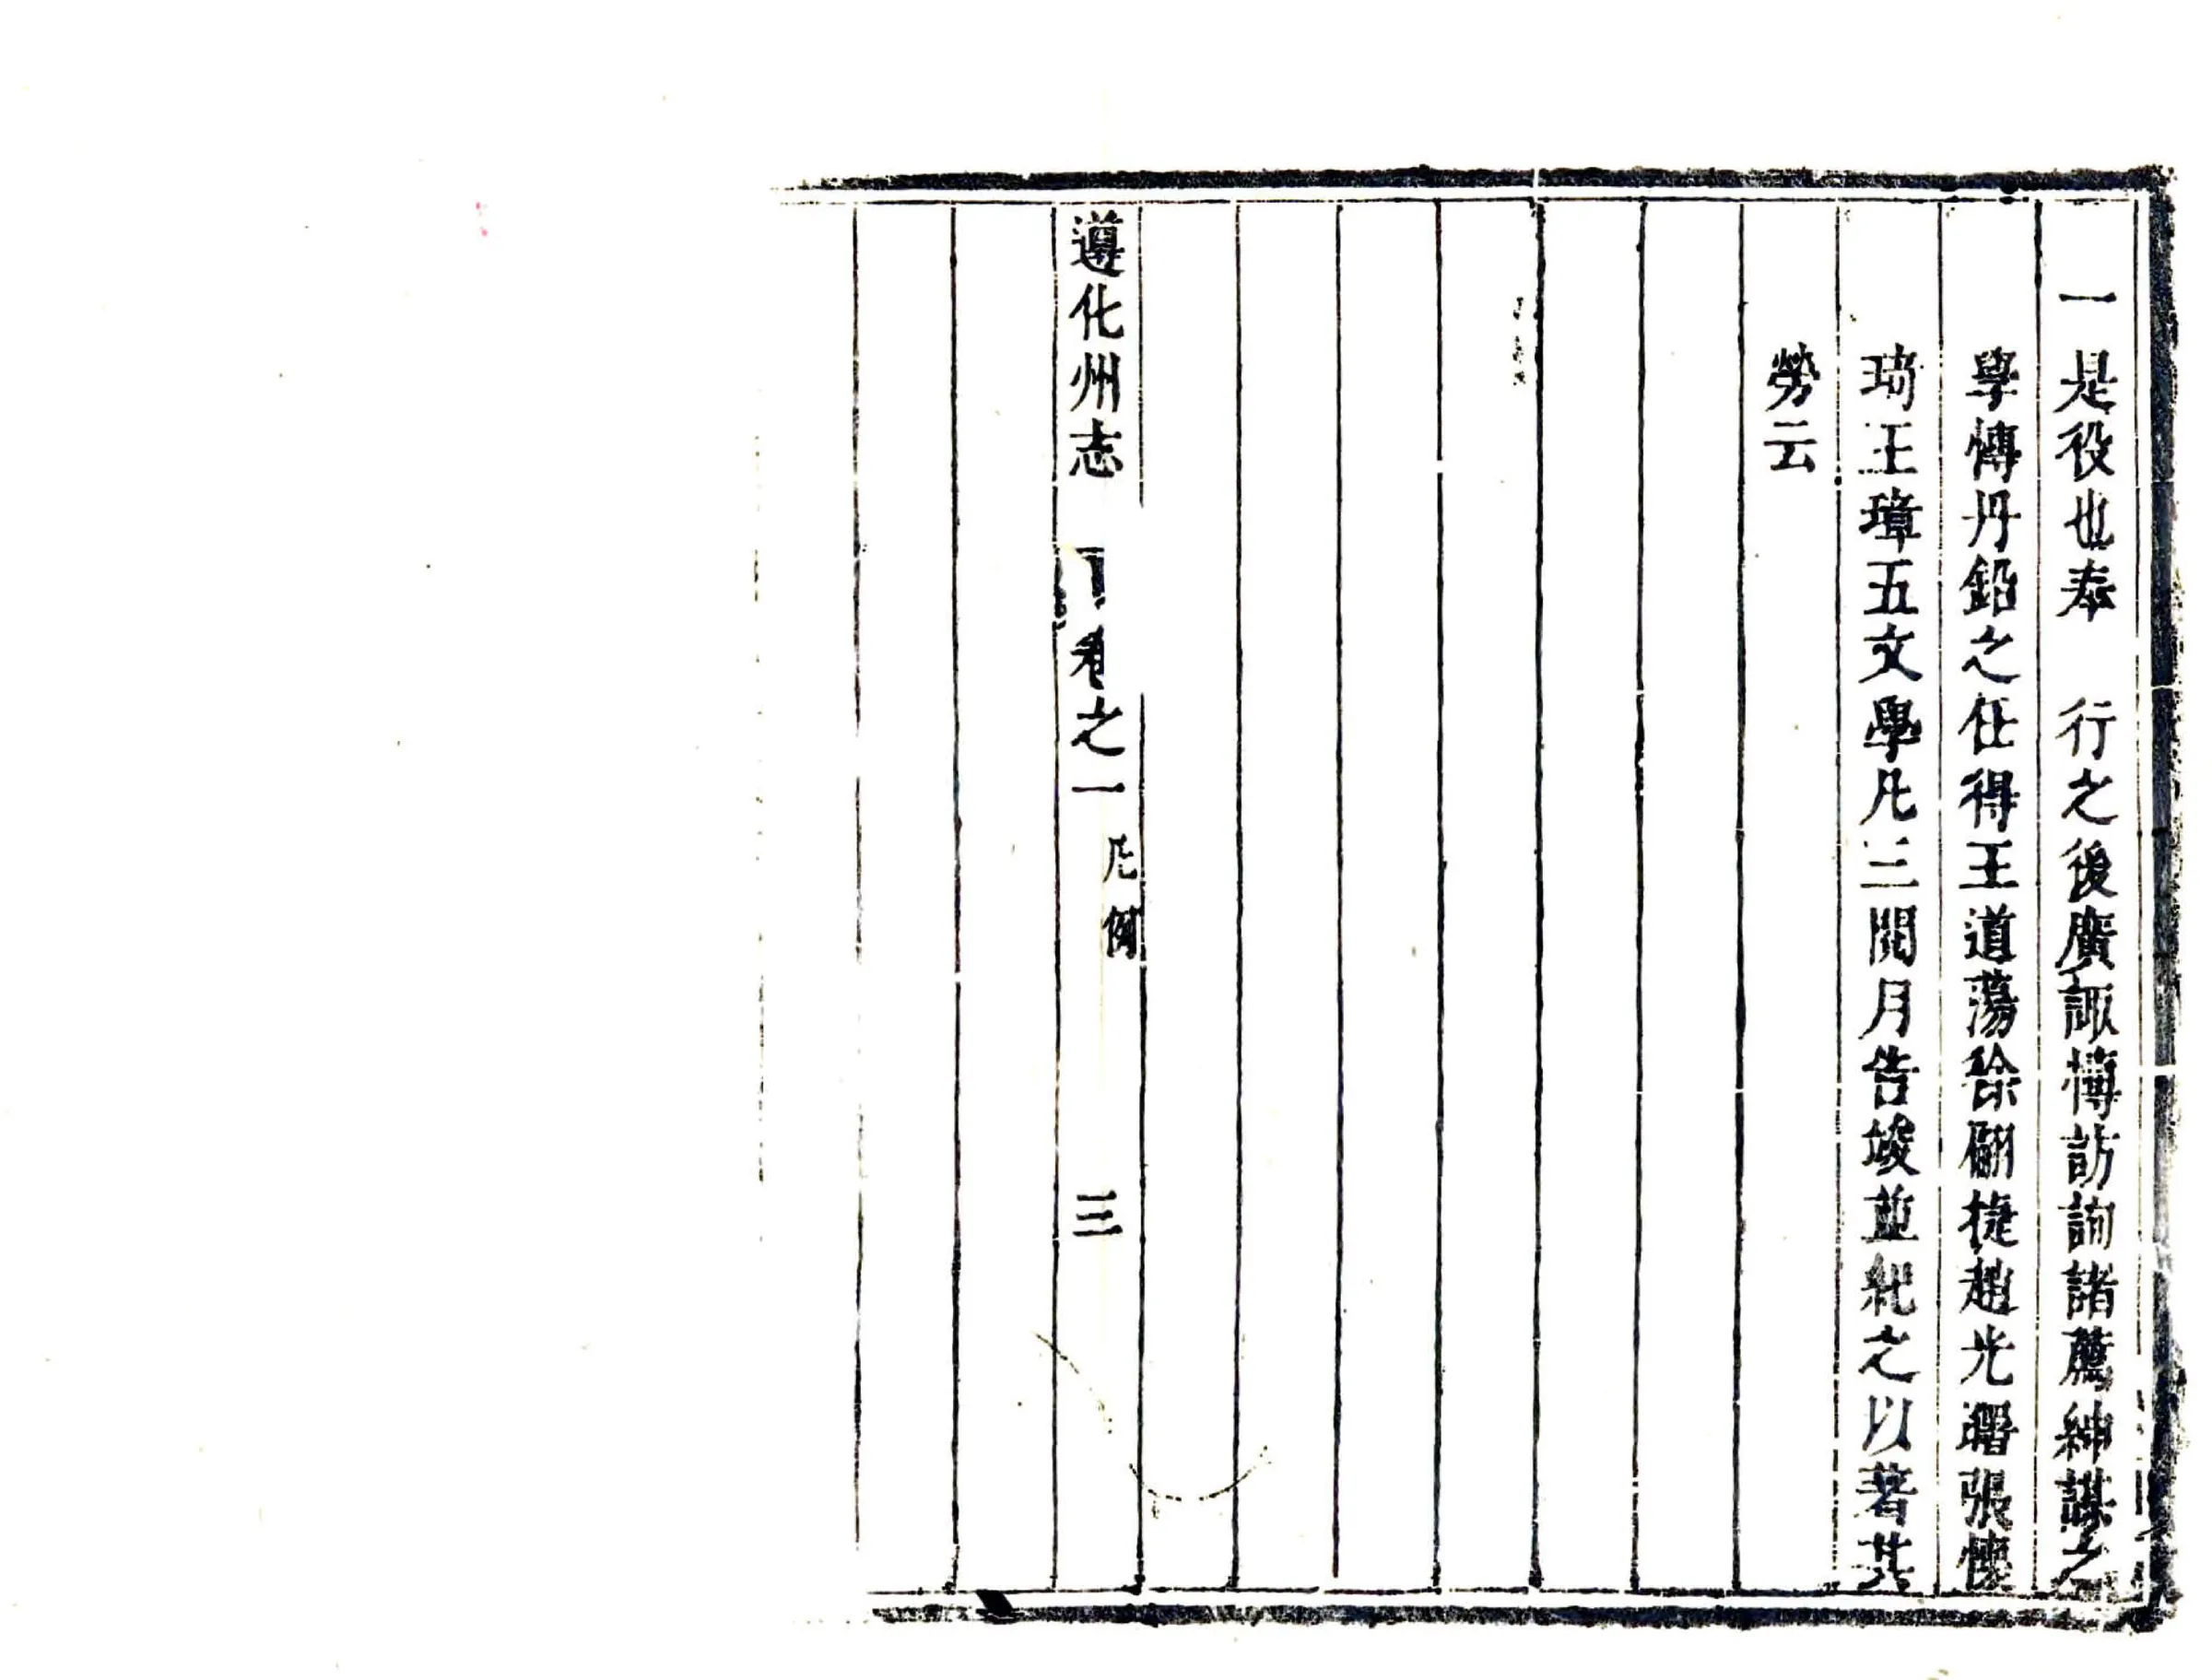 一是役也奉　行之後廣諏博訪詢諸薦紳謀之
學博丹鉛之任得王道蕩徐翩捷趙光璿張懷
琦王璋五文學凡三閱月告竣並紀之以著其
勞云
遵化州志　卷之一　凡例　三